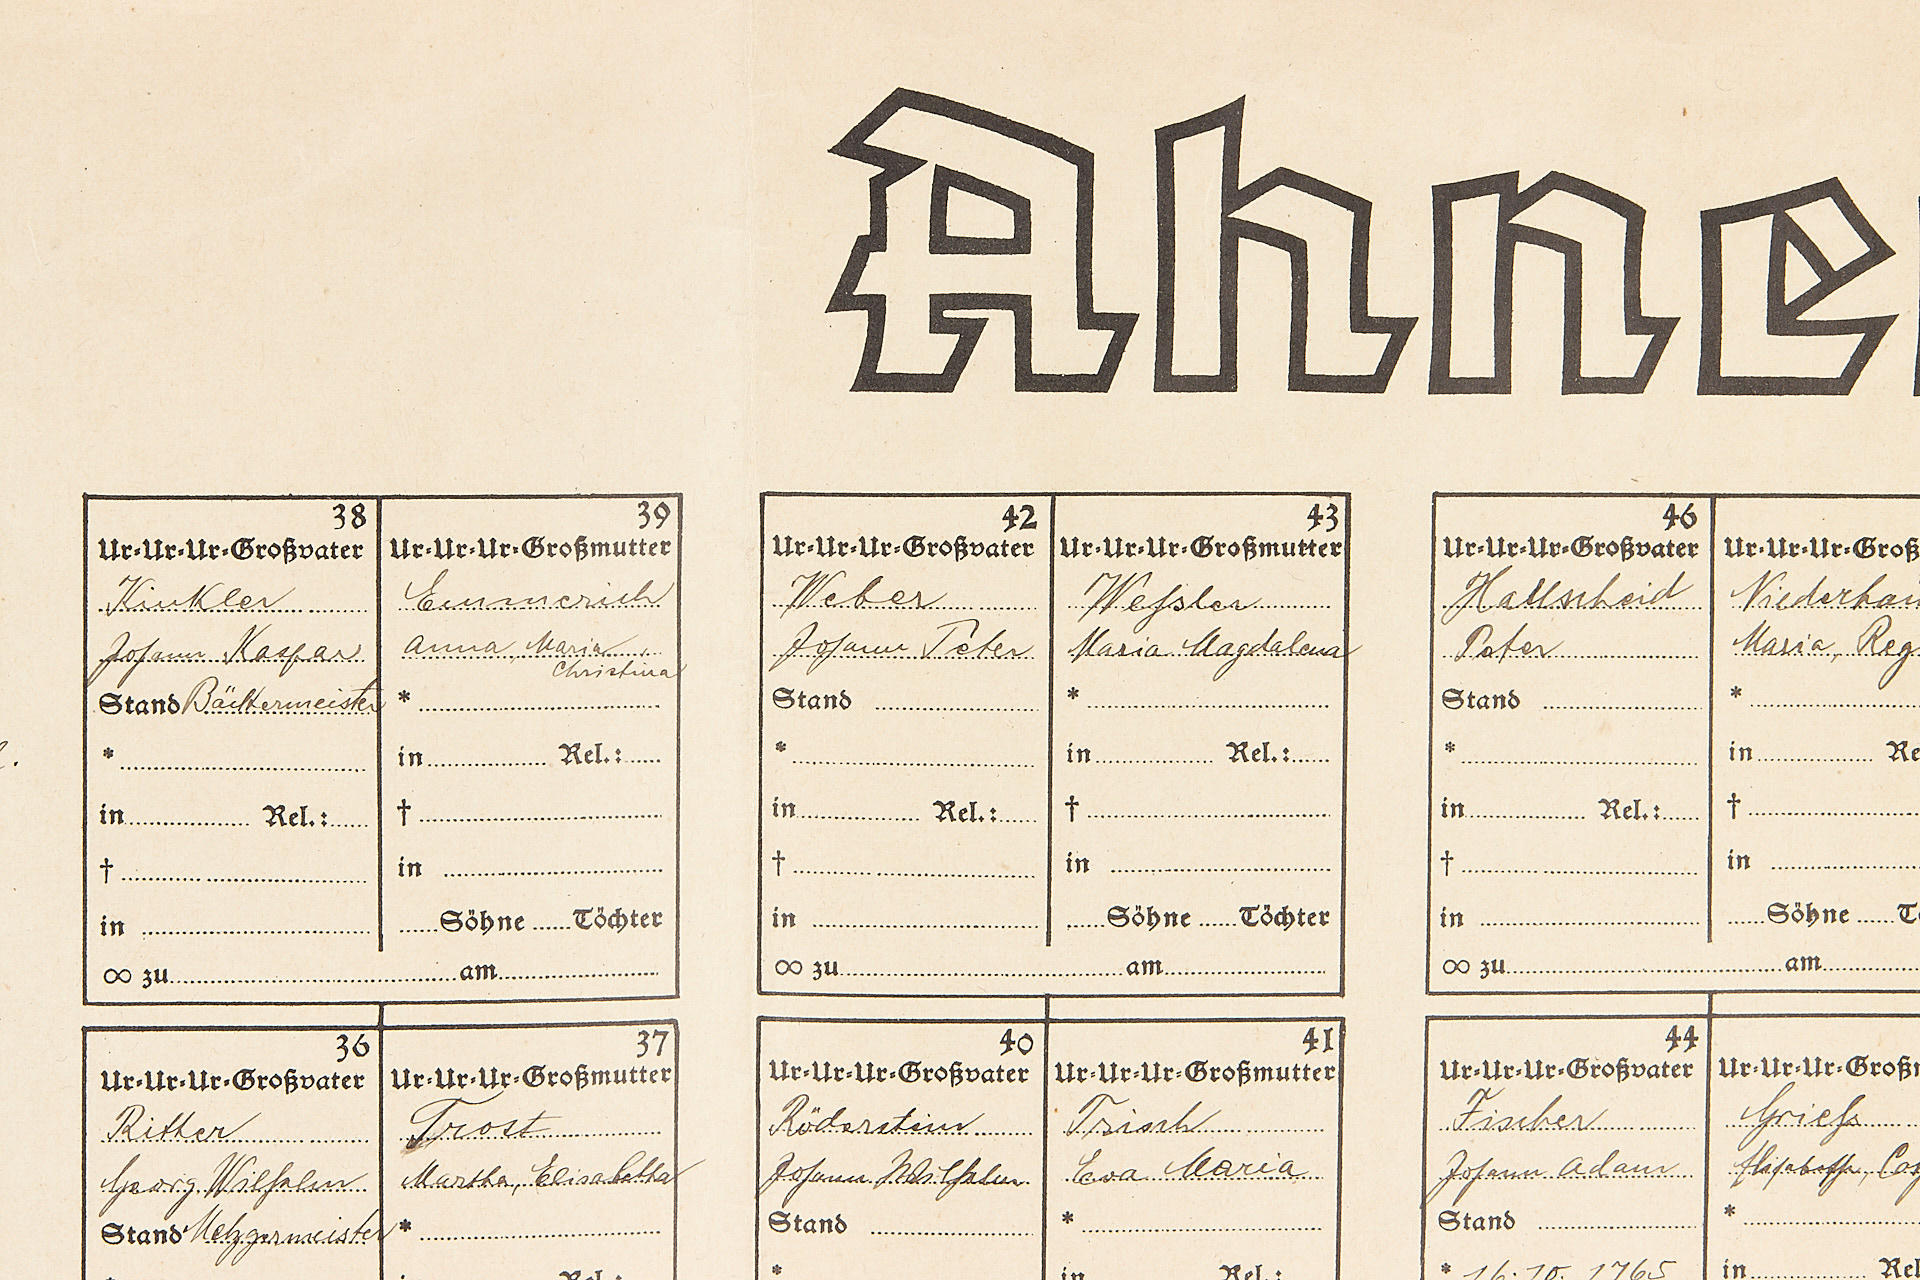 Ahne
38
Ur-Ur-Ur-Großvater
Kinkler
Johann Kaspar
Stand Bäckermeister
*
in Rel.:
†
in
39
Ur-Ur-Ur-Großmutter
Emmerich
Anna, Maria
Christina
*
in Rel.:
†
in
Söhne Töchter
∞ zu am
42
Ur-Ur-Ur-Großvater
Weber
Johann Peter
Stand
*
in Rel.:
†
in
43
Ur-Ur-Ur-Großmutter
Weßler
Maria Magdalena
*
in Rel.:
†
in
Söhne Töchter
∞ zu am
46
Ur-Ur-Ur-Großvater
Hallscheid
Peter
Stand
*
in Rel.:
†
in
Ur-Ur-Ur-Groß
Niederhau
Maria, Reg
*
in Re
†
in
Söhne Tö
∞ zu am
36
Ur-Ur-Ur-Großvater
Ritter
Georg Wilhelm
Stand Metzgermeister
37
Ur-Ur-Ur-Großmutter
Trost
Martha, Elisabetha
*
Rel.:
40
Ur-Ur-Ur-Großvater
Röderstein
Johann Wilhelm
Stand
*
41
Ur-Ur-Ur-Großmutter
Trisch
Eva Maria
*
in Rel.:
44
Ur-Ur-Ur-Großvater
Fischer
Johann Adam
Stand
* 16.10.1765
Ur-Ur-Ur-Groß
Grieß
Elisabetha, Ca
*
in Rel